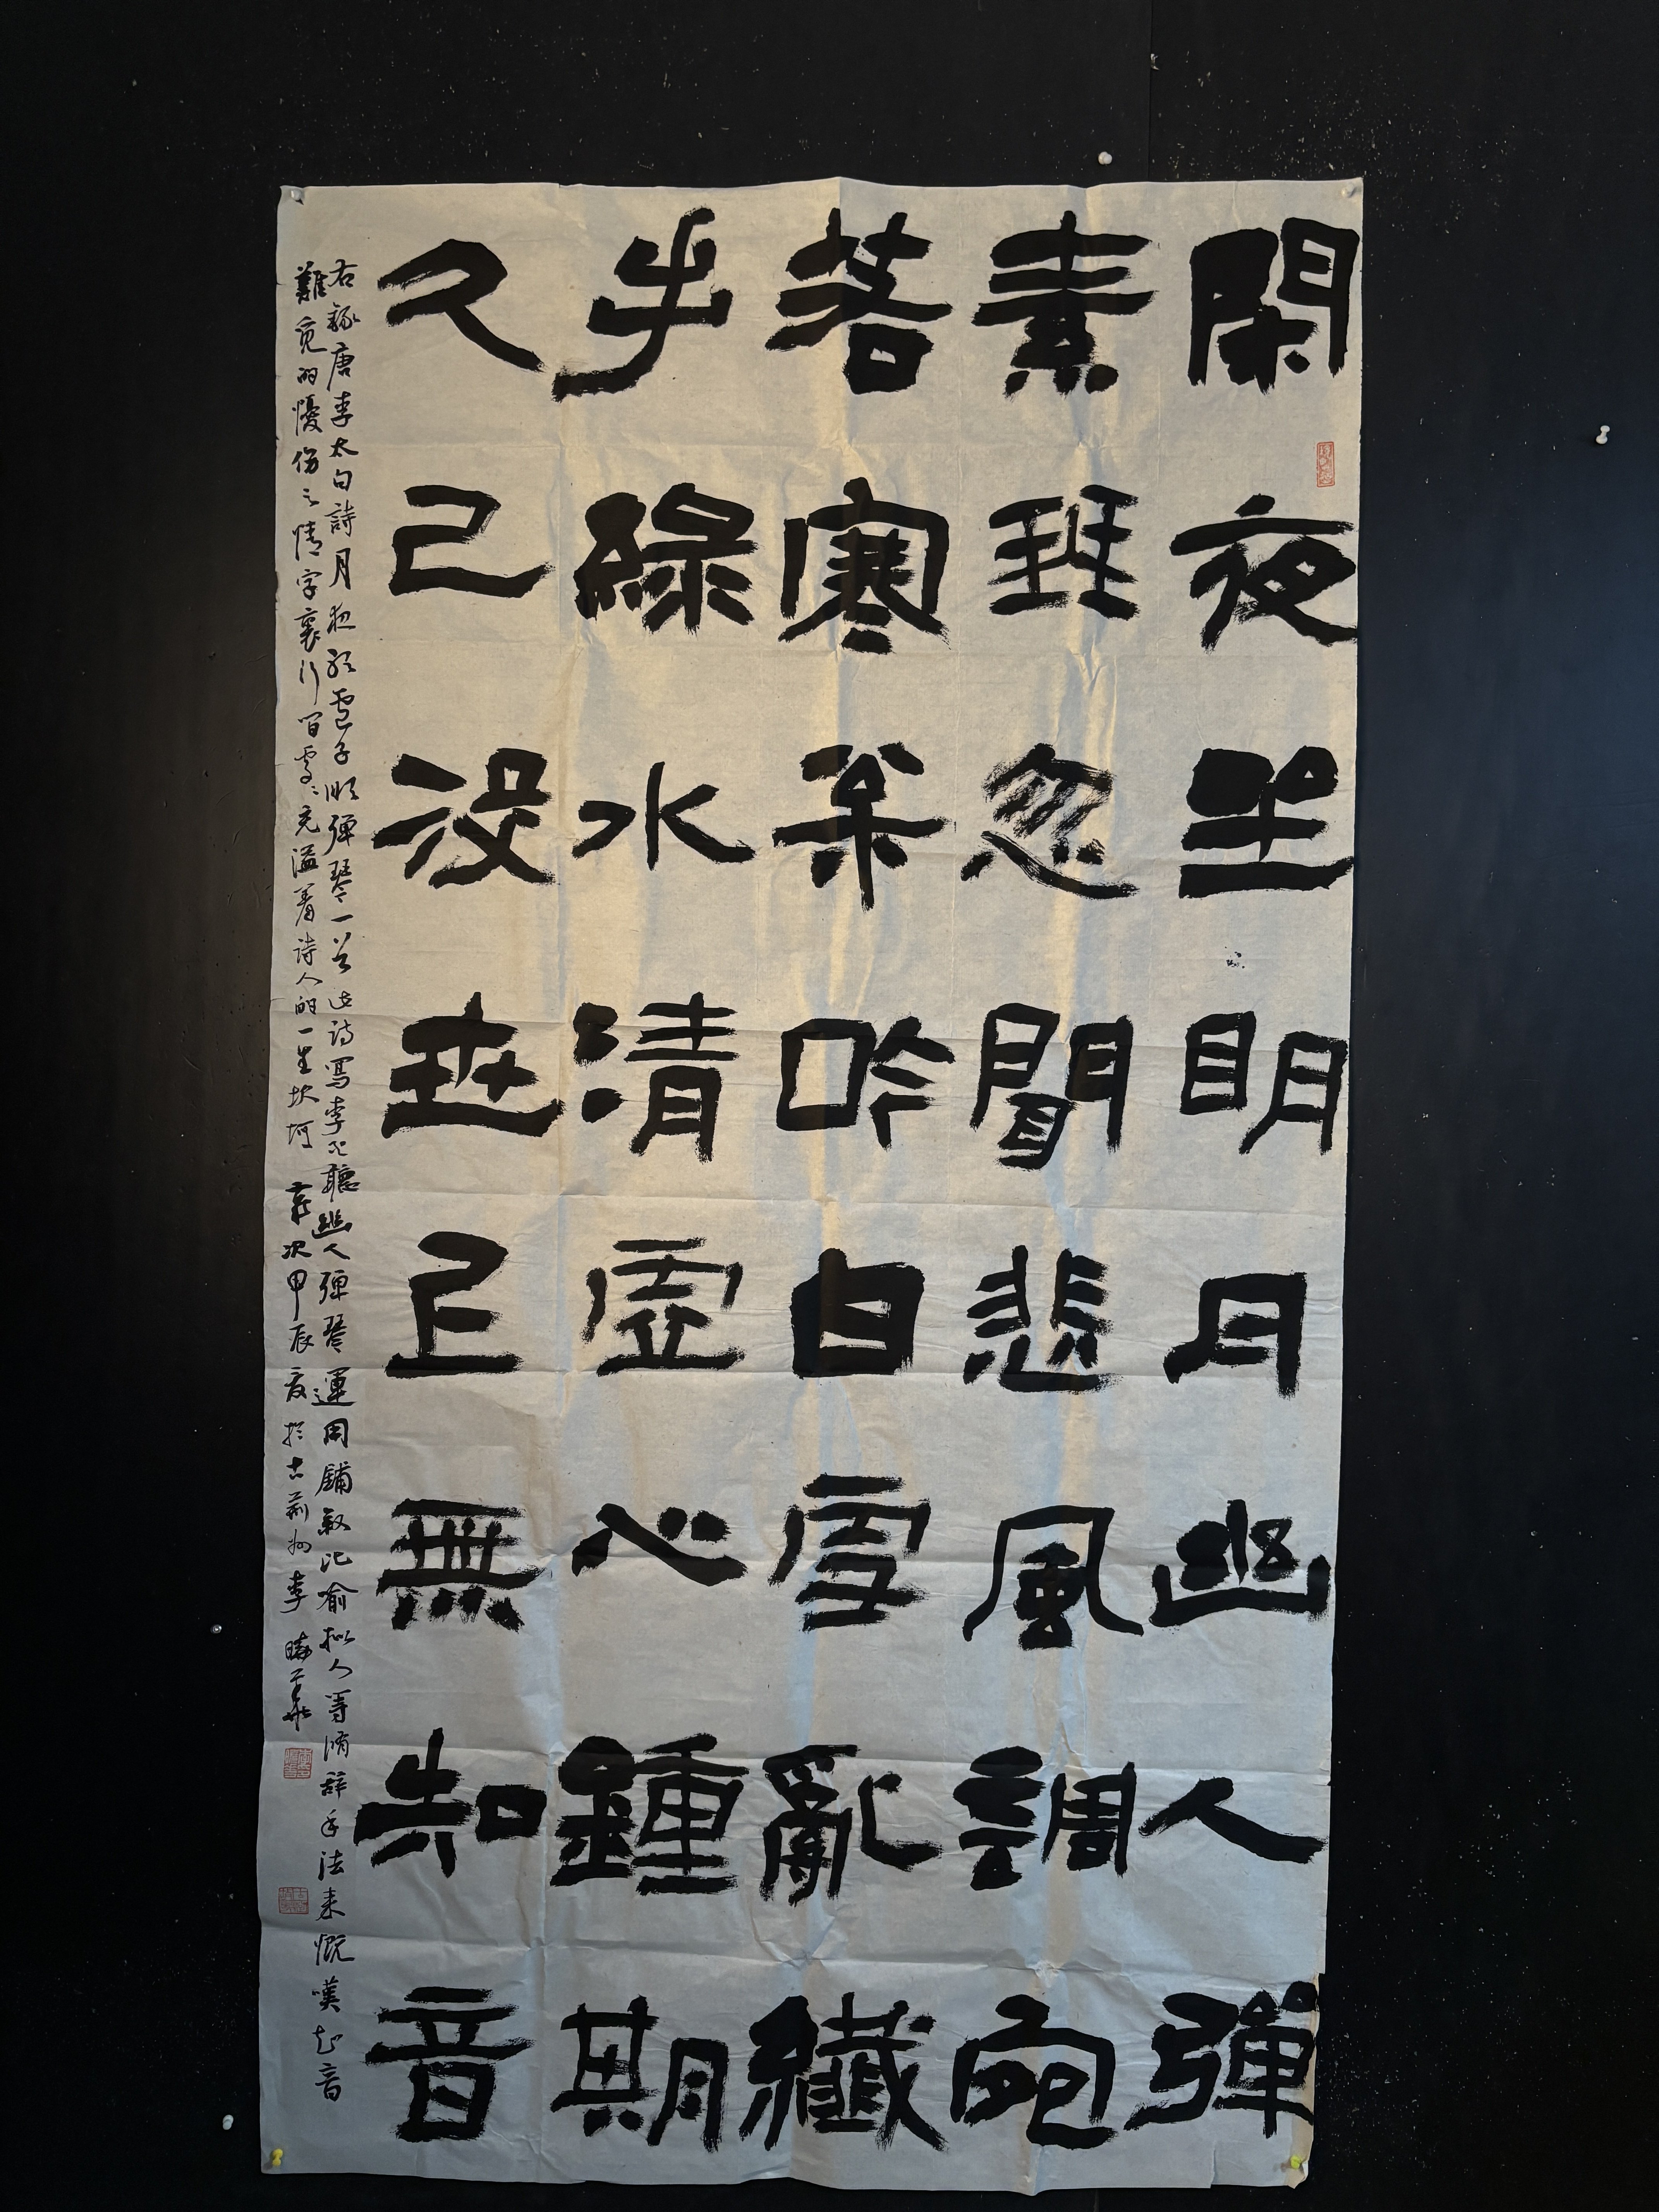 閑夜坐明月幽人彈
素琴忽聞悲風調宛
若寒枀吟白雪亂纖
手綠水清虛心鍾期
久已沒世上無知音
右錄唐李太白詩月夜聽盧子順彈琴一首此詩寫李白聽幽人彈琴運用鋪敘比喻擬人等脩辭手法來慨嘆知音
難覓的懮傷之情字裏行間處處充溢着詩人的一生坎坷 歲次甲辰夏於古荊州李曉華